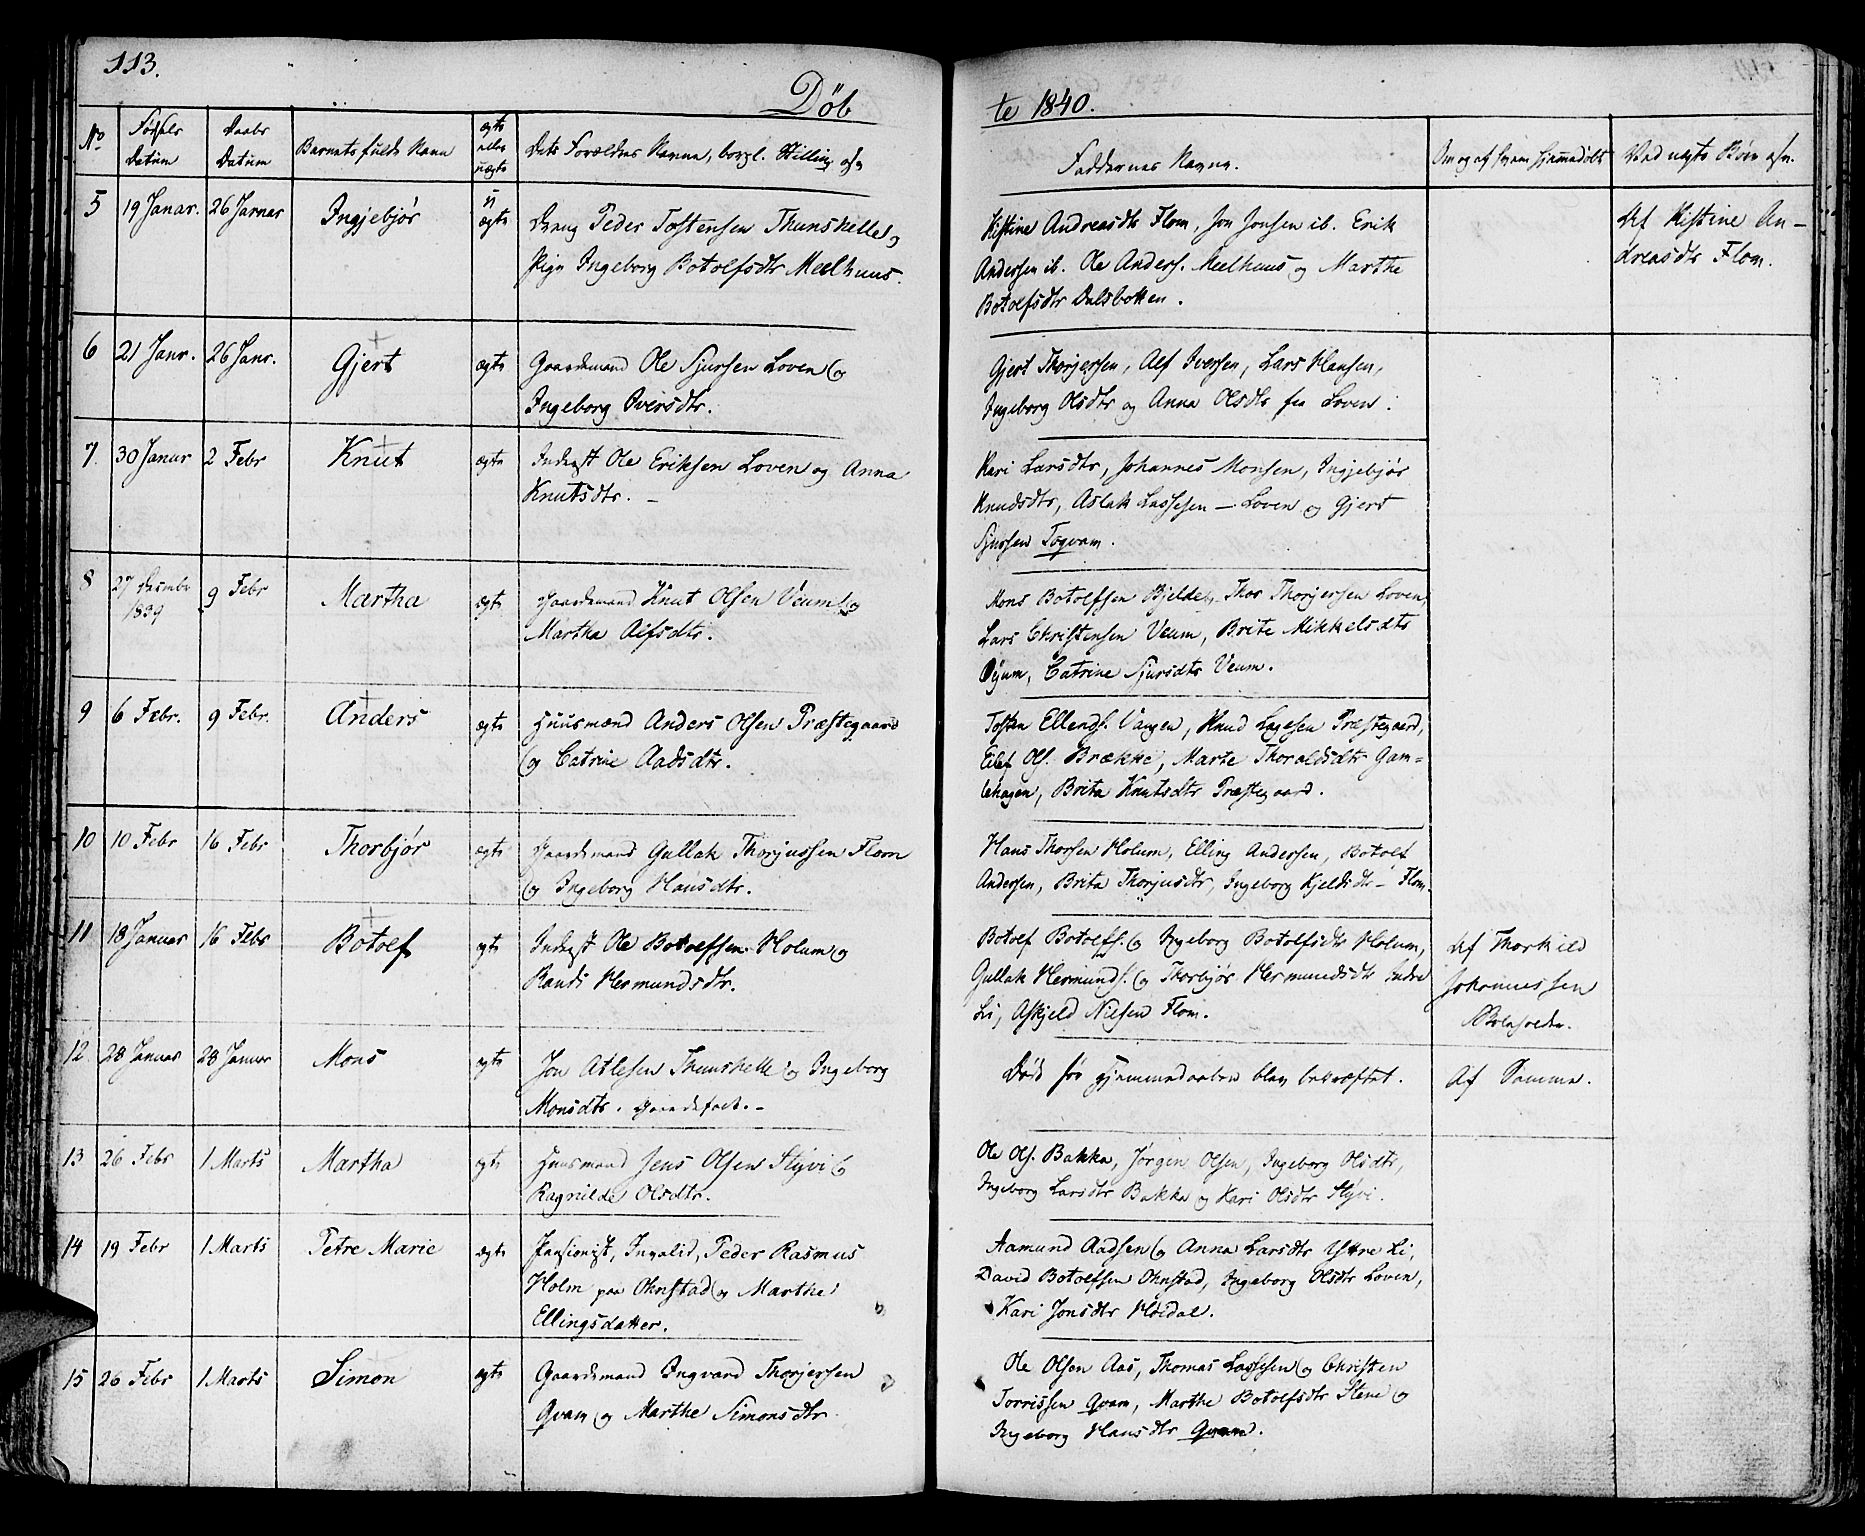 113.
Døbte 1840.
No
Fødsels Datum
Daabs Datum
Barnets fulde Navn
ægte eller uægte
Dets Forældres Navne, borgl. Stilling osv
Faddernes Navne.
Om og af hvem hjemmedøbt
Ved uægte Børn osv.
5 19 Januar. 26 Januar Ingjebjør uægte
Dreng Peder Tostensen Thunshelle og
Pige Ingeborg Botolfsdtr Meelhuus.
Kistine Andreasdtr Flom, Jon Jonsen ib. Erik
Andersen ib. Ole Anders. Meelhuus og Marthe
Botolfsdtr Dalsbotten.
Af Kistine An-
dreasdtr Flom.
6 21 Janr. 26 Janr. Gjert ægte
Gaardemand Ole Sjursen Loven og
Ingeborg Iversdtr.
Gjert Thorjersen, Alf Iversen, Lars Hansen,
Ingeborg Olsdtr og Anna Olsdtr fra Loven.
7. 30 Januar 2 Febr Knut ægte
Inderst Ole Eriksen Loven og Anna
Knutsdtr. –
Kari Larsdtr, Johannes Monsen, Ingjebjør
Knudsdtr, Aslak Lassesen – Loven og Gjert
Sjursen Togvam.
8 27 Decembr 1839 9 Febr Martha ægte
Gaardemand Knut Olsen Veum og
Martha Alfsdtr.
Mons Botolfsen Bjelde, Thor Thorjersen Loven,
Lars Christensen Veum, Brite Mikkelsdtr
Øyum, Catrine Sjursdtr Veum.
9 6 Febr. 9 Febr. Anders ægte
Huusmand Anders Olsen Præstegaard
og Catrine Aadsdtr.
Tosten Ellends. Vangen, Knud Lagesen Præstegaard,
Eilef Ols. Brække, Marte Thoraldsdtr Gam=
lehagen, Brita Knutsdtr Præstegaard.
10 10 Febr 16 Febr Thorbjør ægte
Gaardemand Gullak Thorjussen Flom
og Ingeborg Hansdtr.
Hans Thorsen Holum, Elling Andersen, Botolf
Andersen, Brita Thorjusdtr, Ingeborg Kjeldsdtr – Flom.
11 18 Januar 16 Febr Botolf ægte
Inderst Ole Botolfsen Holum og
Randi Hermundsdtr.
Botolf Botolfs. og Ingeborg Botolfsdtr Holum,
Gullak Hermunds. og Thorbjør Hermundsdtr Indre
Li, Askjeld Nilsen Flom.
Af Thorkild
Johannessen
12. 28 Januar 28 Januar Mons ægte
Jon Atlesen Thunshelle og Ingeborg
Monsdtr. Gaardefolk. –
Døde før Hjemmedaaben blev bekræftet.
Af Samme.
13 26 Febr 1 Marts Martha ægte
Huusmand Jens Olsen Styvi og
Ragnilde Olsdtr.
Ole Ols. Bakka, Jørgen Olsen, Ingeborg Olsdtr,
Ingeborg Larsdtr Bakka og Kari Olsdtr Styvi.
14 19 Febr 1 Marts Petre Marie ægte
Pensionist, Invalid, Peder Rasmus
Holm paa Ohnstad og Marthe
Ellingsdatter.
Aamund Aadsen og Anna Larsdtr Yttre Li,
David Botolfsen Ohnstad, Ingeborg Olsdtr Loven,
Kari Jonsdtr Høidal.
15 26 Febr 1 Marts Simon ægte
Gaardemand Ingvard Thorjersen
Qvam og Marthe Simonsdtr.
Ole Olsen Aas, Thomas Lassesen og Christen
Torrissen Qvam, Marthe Botolfsdtr Stene og
Ingeborg Hansdtr Qvam.